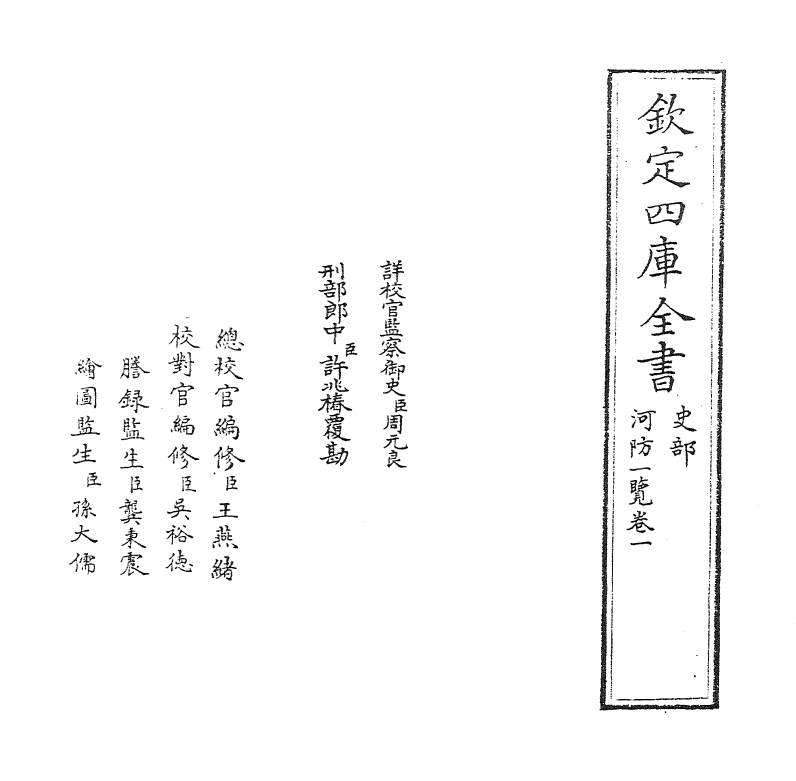 欽定四庫全書
史部
河防一覽卷一
詳校官監察御史臣周元良
刑部郎中臣許兆椿覆勘
總校官編修臣王燕緒
校對官編修臣吳裕德
謄録監生臣龔東震
繪圖監生臣孫大儒